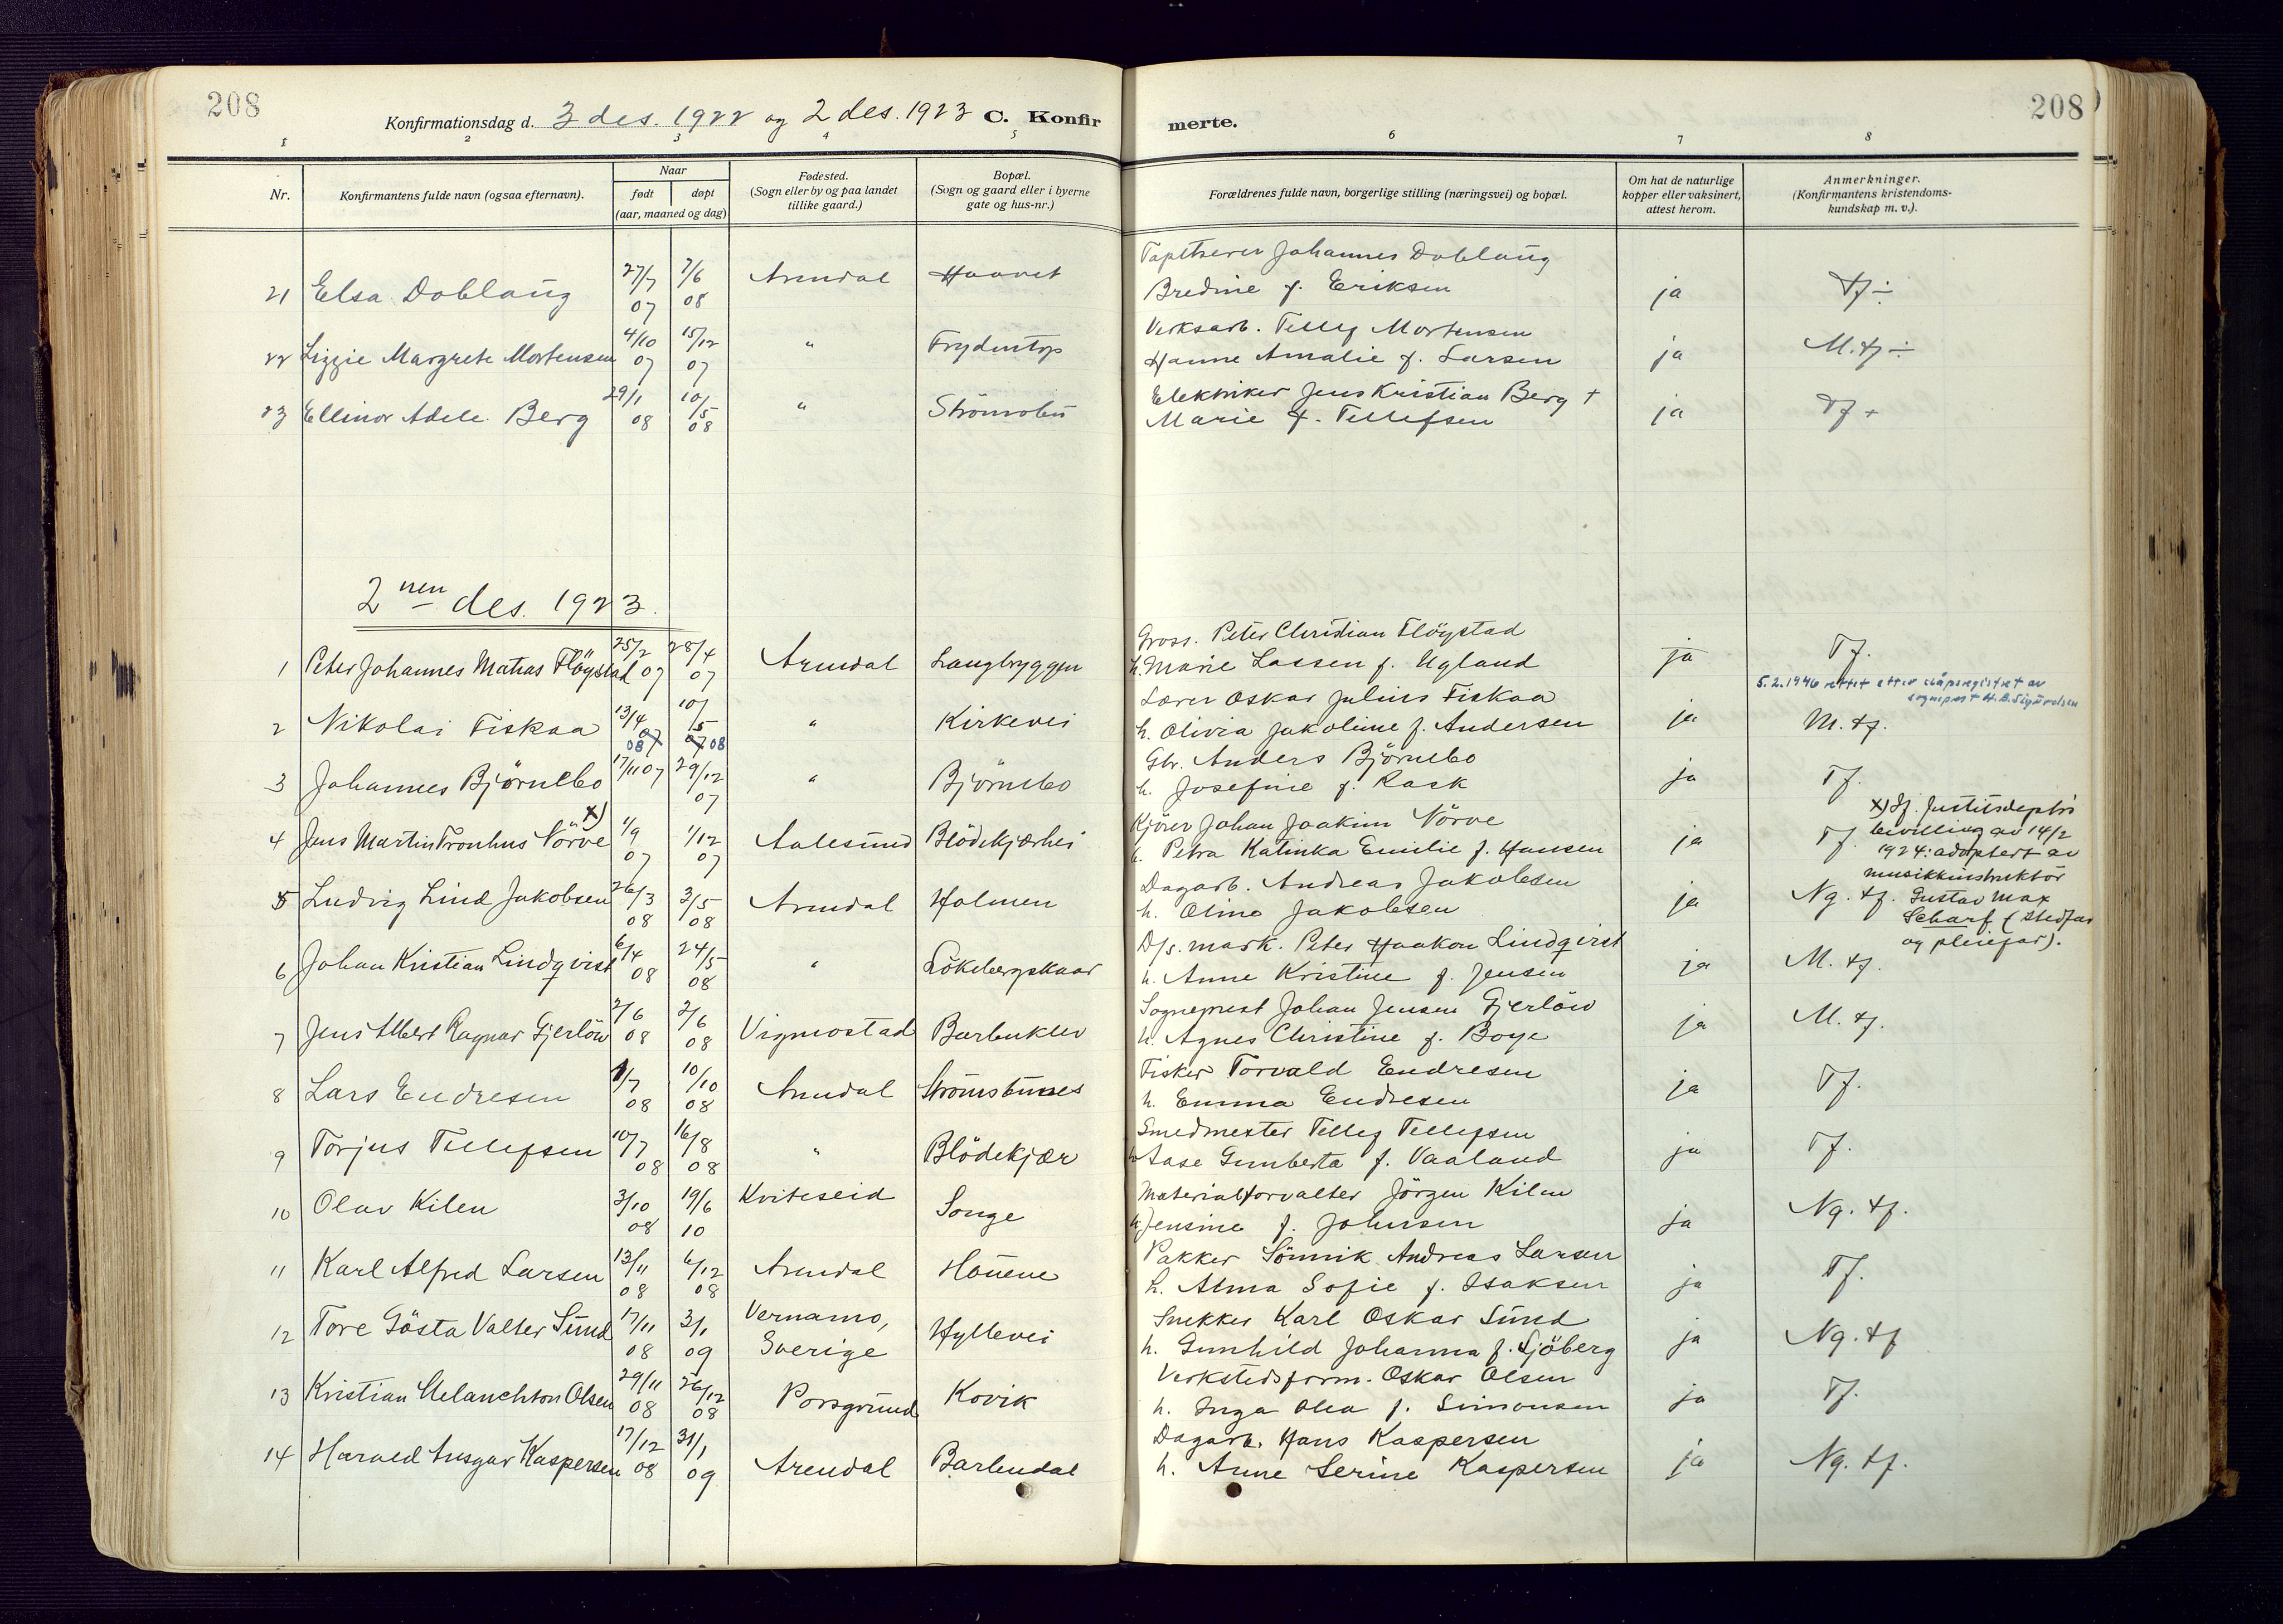 208
Konfirmationsdag d. 3 des. 1922 og 2 des. 1923 C. Konfirmerte.
208
1 2 3 4 5 6 7 8
Nr.
Konfirmantens fulde navn (ogsaa efternavn).
Naar
født
døpt
(aar, maaned og dag)
Fødested.
(Sogn eller by og paa landet
tillike gaard.)
Bopæl.
(Sogn og gaard eller i byerne
gate og hus-nr.)
Forældrenes fulde navn, borgerlige stilling (næringsvei) og bopæl.
Om hat de naturlige
kopper eller vaksinert,
attest herom.
Anmerkninger.
(Konfirmantens kristendoms-
kundskap m. v.).
21 Elsa Doblaug 27/7 07 7/6 08 Arendal Haavet
Tapetserer Johannes Doblaug
Bredine f. Eriksen ja tf ÷
22 Lizzie Margrete Mortensen 4/10 07 15/12 07 " Frydentop
Verksarb. Tellef Mortensen
Hanne Amalie f. Larsen ja M. tf ÷
23 Ellinor Adele Berg 29/1 08 10/5 08 " Strömsbu
Elektriker Jens Kristian Berg +
Marie f. Tellefsen ja Tf +
2nen des. 1923.
1 Peter Johannes Matias Flöystad 25/2 07 28/4 07 Arendal Langbryggen
Gross. Peter Christian Flöystad
h. Marie Lassen f. Ugland ja Tf.
5.2.1946 rettet etter dåpsregistret av
sogneprest H. B. Sigurdsen
2 Nikolai Fiskaa 13/4 07 08 10/5 07 08 " Kirkevei
Lærer Oskar Julius Fiskaa
h. Olivia Jakoline f. Andersen ja M. tf.
3 Johannes Björnebo 17/11 07 29/12 07 " Björnebo
Gbr. Anders Björnebo
h. Josefine f. Rask ja Tf.
4 Jens Martin Tronhus Nörve x) 1/9 07 1/12 07 Aalesund Blödekjærhei
Kjörer Johan Joakim Nörve
h. Petra Katinka Emilie f. Hansen ja Tf.
x) If. Justitsdepts
bevilling av 14/2
1924: adoptert av
musikkinstruktör
Gustav Max
Scharf (stedfar
og pleiefar).
5 Ludvig Lind Jakobsen 26/3 08 3/5 08 Arendal Holmen
Dagarb. Andreas Jakobsen
h. Oline Jakobsen ja Ng. tf.
6 Johan Kristian Lindqvist 6/4 08 24/5 08 " Lökebergskaar
D/s. mask. Peter Haakon Lindqvist
h. Anne Kristine f. Jensen ja M. tf.
7 Jens Albert Ragnar Gjerlöw 2/6 08 2/6 08 Vigmostad Barbuklev
Sogneprest Johan Jensen Gjerlöw
h. Agnes Christine f. Boye ja M. tf.
8 Lars Endresen 1/7 08 10/10 08 Arendal Strömsbunes
Fisker Torvald Endresen
h. Emma Endresen ja Tf.
9 Torjus Tellefsen 10/7 08 16/8 08 " Blödekjær
Smedmester Tellef Tellefsen
h. Aase Gunberta f. Vaaland ja Tf.
10 Olav Kilen 3/10 08 19/6 10 Kviteseid Songe
Materialforvalter Jörgen Kilen
h. Jensine f. Johnsen ja Ng. tf.
11 Karl Alfred Larsen 13/11 08 6/12 08 Arendal Houene
Pakker Sönnik Andreas Larsen
h. Alma Sofie f. Isaksen ja Tf.
12 Tore Gösta Valter Sund 17/11 08 3/1 09 Vernamo, Sverige Hyllevei
Snekker Karl Oskar Sund
h. Gunhild Johanna f. Sjöberg ja Ng. tf
13 Kristian Melanchton Olsen 29/11 08 26/12 08 Porsgrund Kovik
Verkstedsform. Oskar Olsen
h. Inga Olea f. Simonsen ja Tf.
14 Harald Ansgar Kaspersen 17/12 08 31/1 09 Arendal Barbudal
Dagarb. Hans Kaspersen
h. Anne Serine Kaspersen ja Ng. tf.